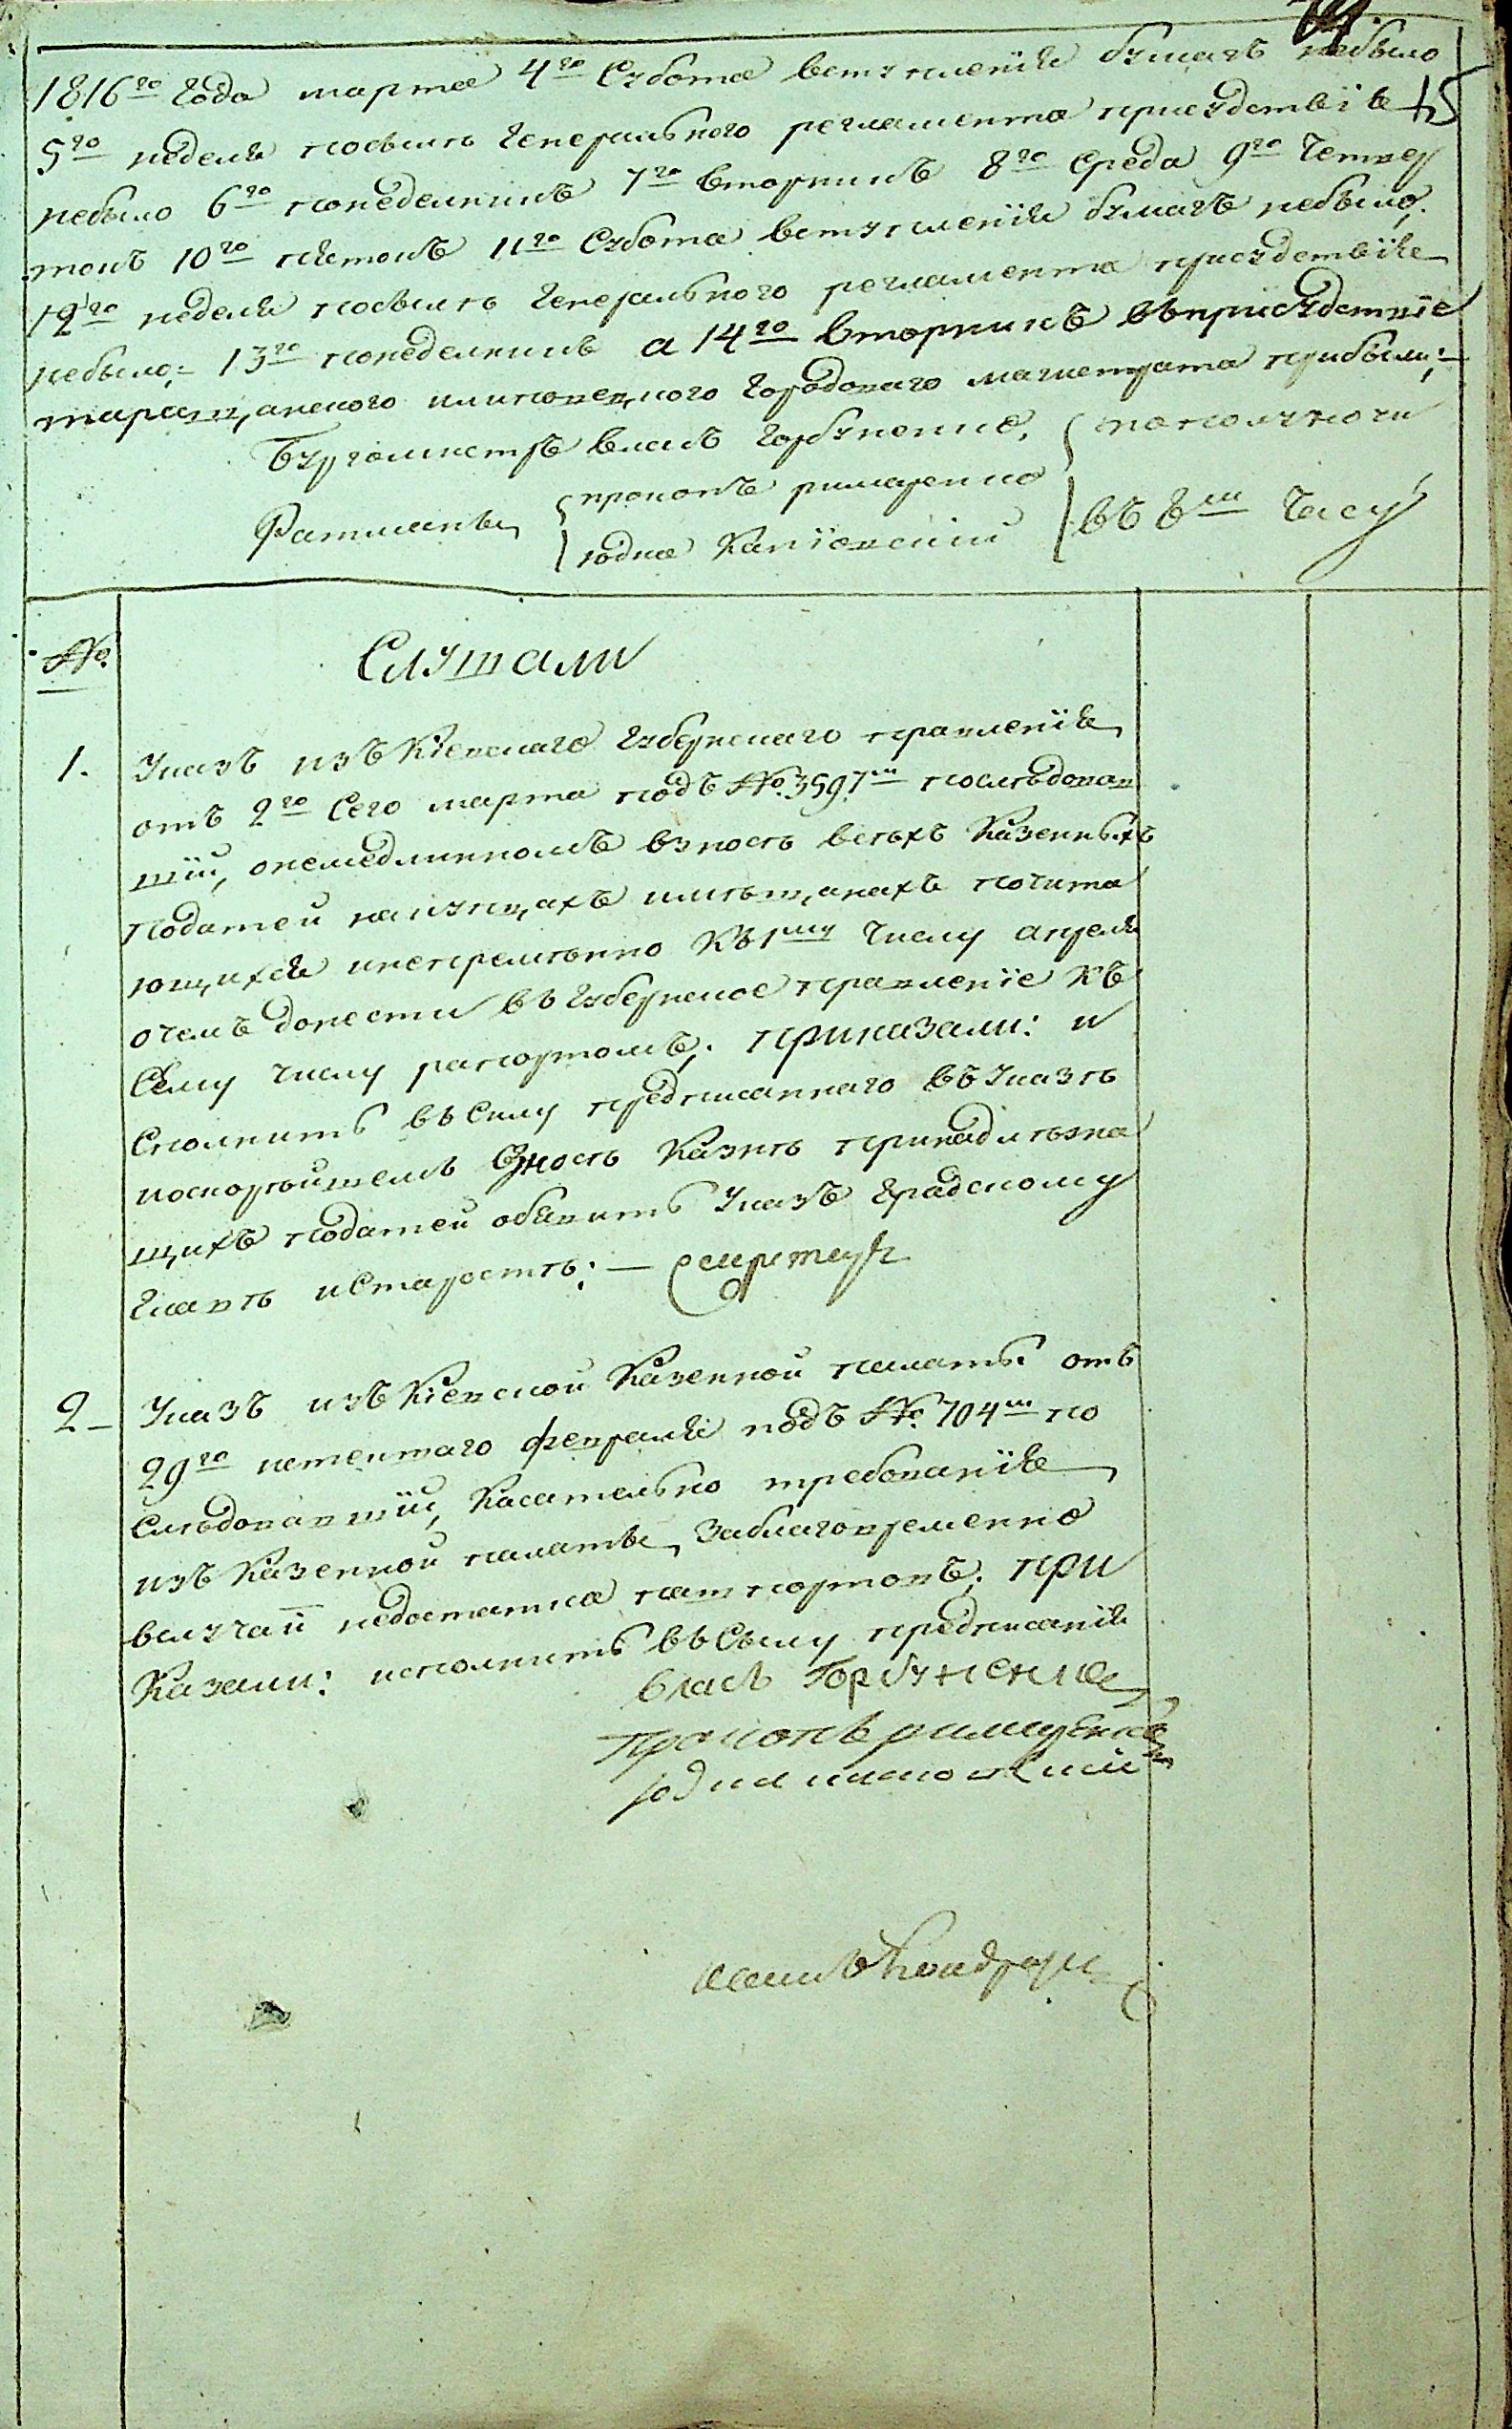 1816го года марта 4го Субота вступленiя бумагъ небыло
5го неделя посылѣ Генерального регламента присудствiя 15
небыло 6го понеделникъ 7го вторникъ 8го Среда 9го Четвер
токъ 10го пятокъ 11го Субота вступленiя бумагъ небыло;
12го неделя посылѣ Генерального регламента присудствiя
небыло:- 13го понеделникъ а 14го вторникъ въприсудствiе
таращанского Городоваго магистрата прибыли:-
Бургомистръ власъ Горбуненко, пополуночи
Ратманы прокопъ римаренко въ 8м часу
юдка Канiовскiй
№
Слушали
1. Указъ изъ Кiевскаго Губернскаго правленiя
отъ 2го Сего марта подъ №. 3597м последовав
шiй, онемедлинномъ взносѣ всѣхъ Казенныхъ
податей накупцахъ имѣщанахъ почита
ющихся инепремѣнно къ1му Числу апреля
очемъ донести въ Губернское правленiе къ
Сему числу рапортомъ; приказали: и
Сполнить въСилу предписаннаго въ Указѣ
носкорѣйшемъ взносѣ Казнѣ принадлѣжа
щихъ податей обявить Указъ Градскому
Главѣ иСтаростѣ:—
2- Указъ изъ Кiевской Казенной палаты отъ
29го истектаго февраля подъ №. 704м по
Слѣдовавшiй, Касательно требованiя
изъ Казенной палаты, Заблаговременно
вслучаи недостатка пашпортовъ; при
Казали: исполнить въСылу предписанiя
власъ Горбуненко
прокопъ римаренко
юдка каниовскiй